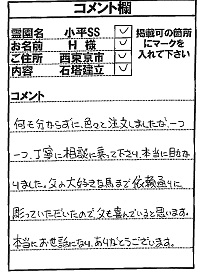 コメント欄
霊園名 小平SS ✓
お名前 H 様 ✓
ご住所 西東京市 ✓
内容 石塔建立 ✓
掲載可の箇所
にマークを
入れて下さい
コメント
何も分からずに、色々と注文しましたが、一つ
一つ、丁寧に相談に乗って下さり、本当に助か
りました。父の大好きな馬まで依頼通りに
彫っていただいたので、父も喜んでいると思います。
本当にお世話になり、ありがとうございます。